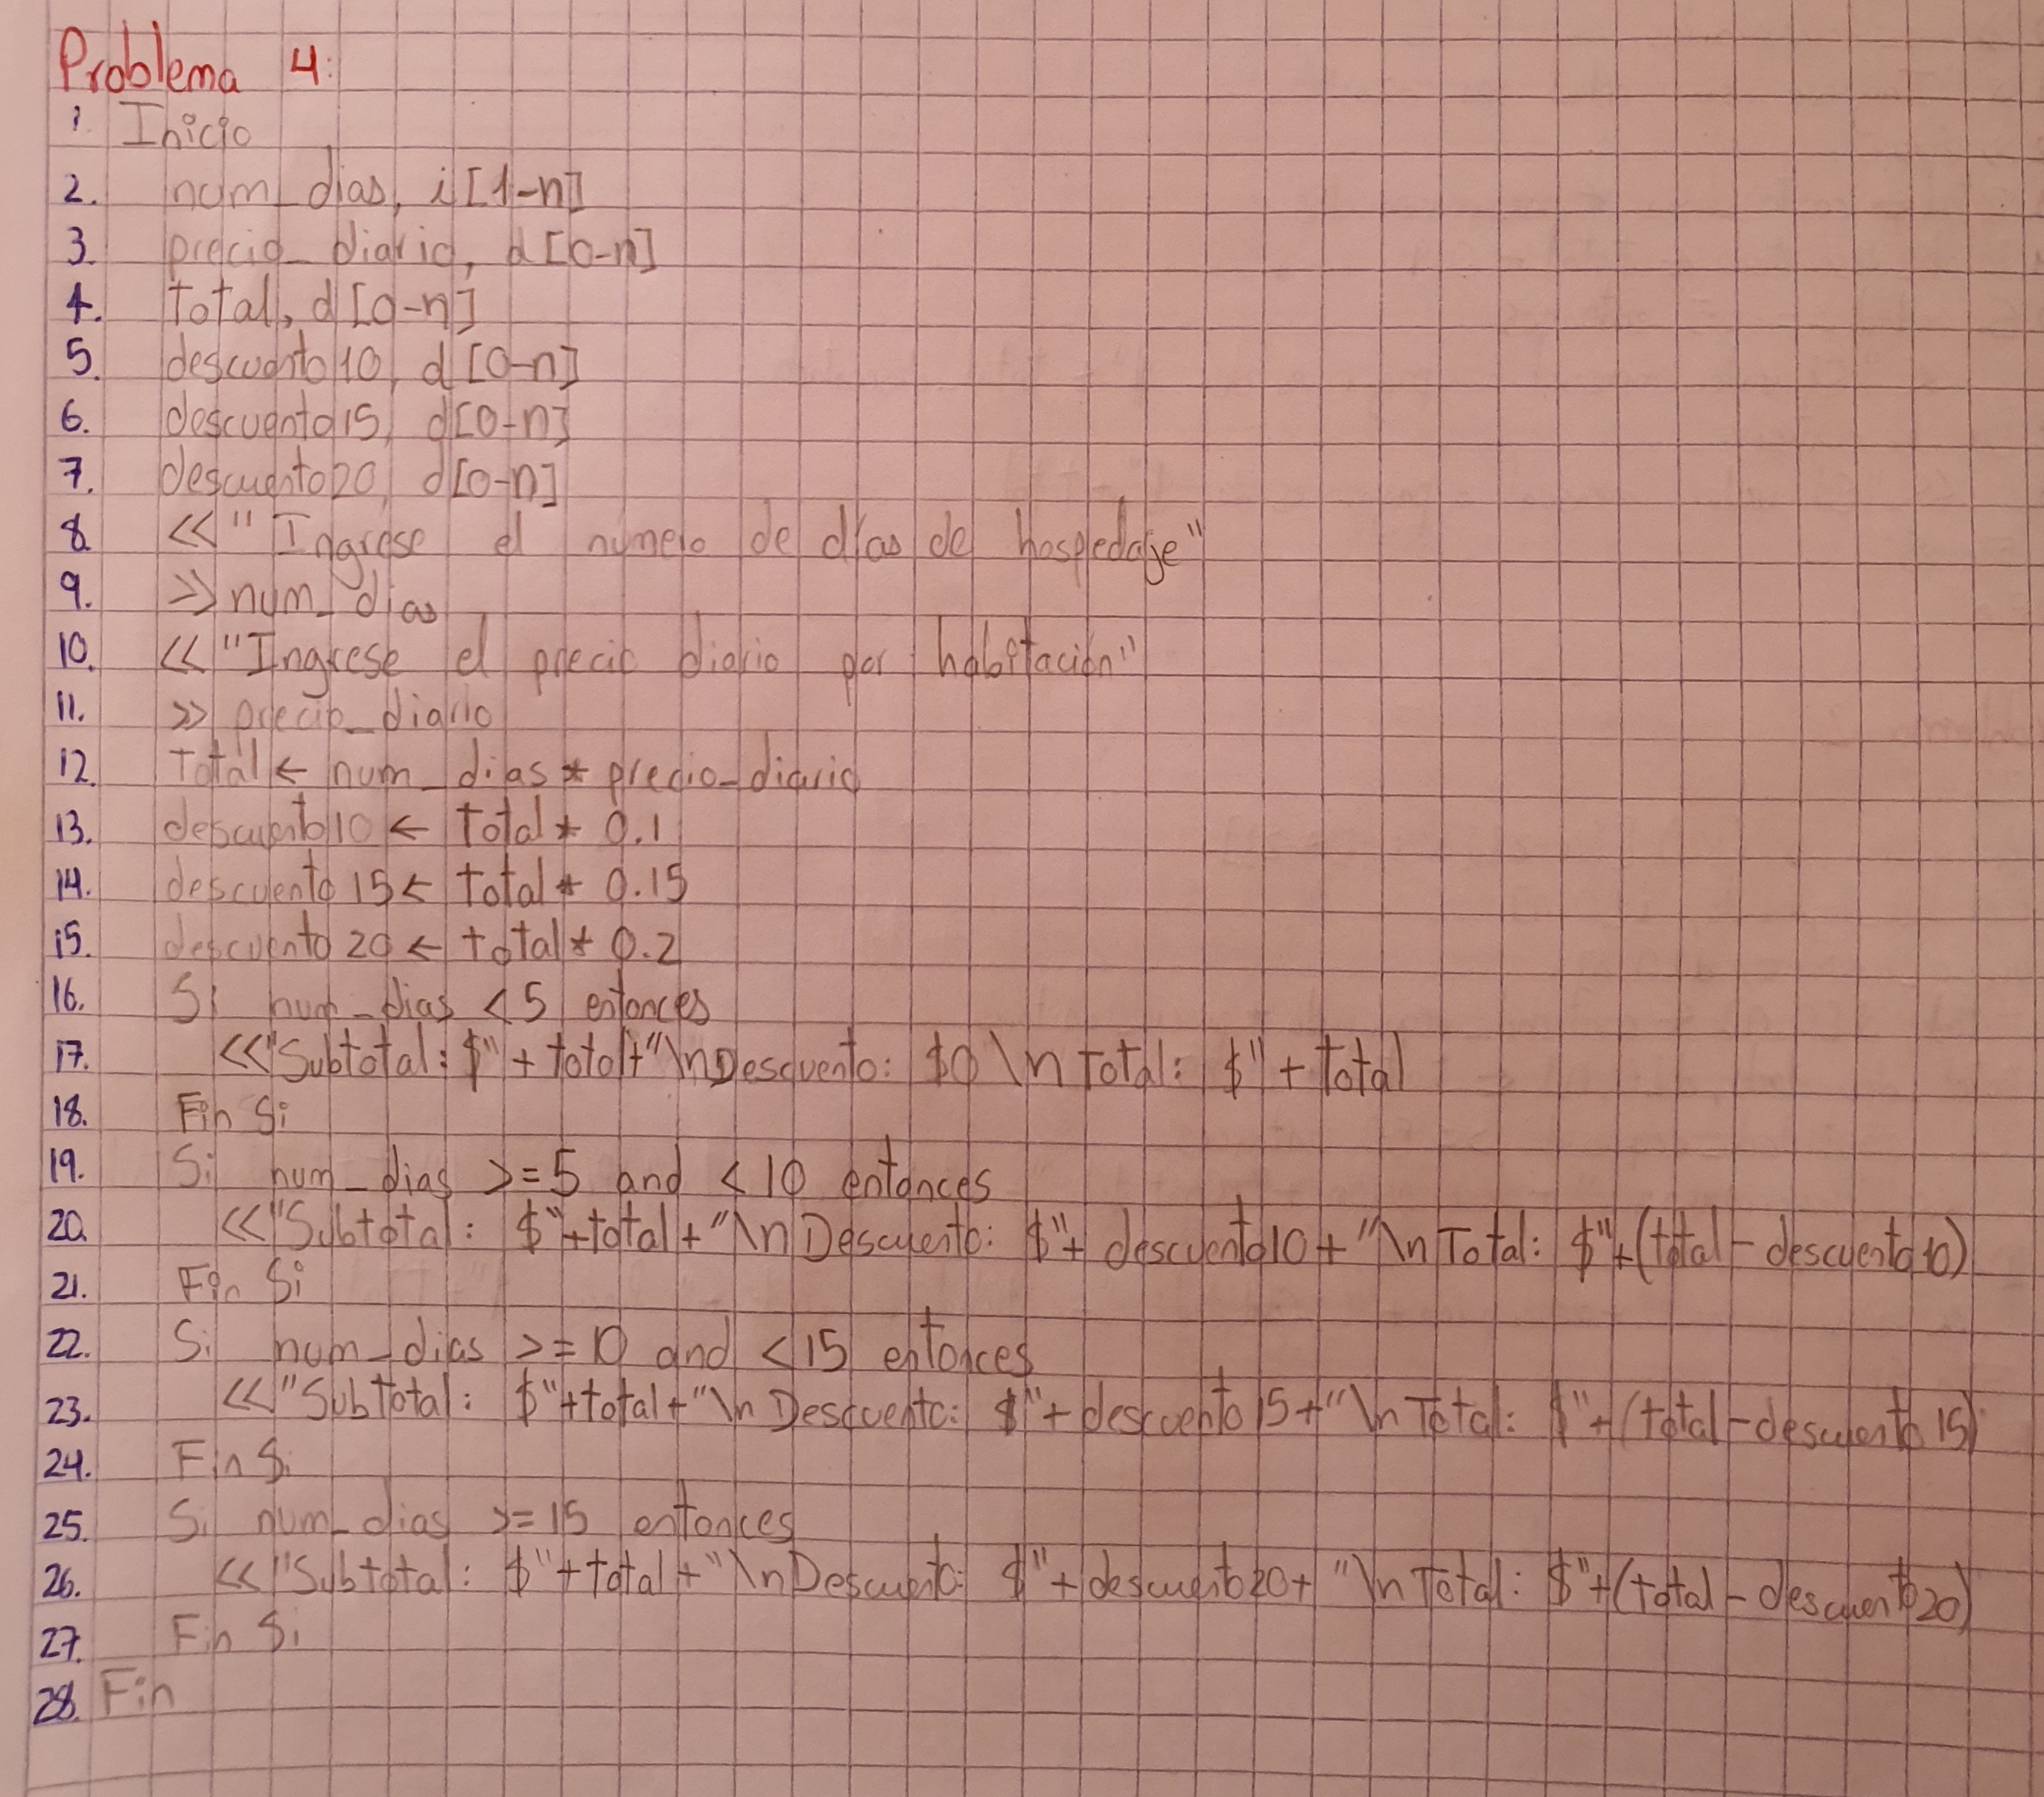 Problema 4:
1. Inicio
2. num_dias, i[1-n]
3. precio_diario, d[0-n]
4. total, d[0-n]
5. descuento10, d[0-n]
6. descuento15, d[0-n]
7. descuento20, d[0-n]
8. <<"Ingrese el número de días de hospedaje"
9. >> num_dias
10. <<"Ingrese el precio diario por habitación"
11. >> precio_diario
12. total ← num_dias * precio_diario
13. descuento10 ← total * 0.1
14. descuento15 ← total * 0.15
15. descuento20 ← total * 0.2
16. Si num_dias < 5 entonces
17. <<"Subtotal: $" + total + "\nDescuento: $0 \n Total: $" + total
18. Fin Si
19. Si num_dias >= 5 and < 10 entonces
20. <<"Subtotal: $"+total+"\nDescuento: $"+ descuento10+"\nTotal: $"+(total-descuento10)
21. Fin Si
22. Si num_dias >= 10 and < 15 entonces
23. <<"SubTotal: $"+total+"\nDescuento: $"+descuento15+"\nTotal: $"+(total-descuento15)
24. Fin Si
25. Si num_dias >= 15 entonces
26. <<"Subtotal: $"+total+"\nDescuento: $"+descuento20+"\nTotal: $"+(total-descuento20)
27. Fin Si
28. Fin